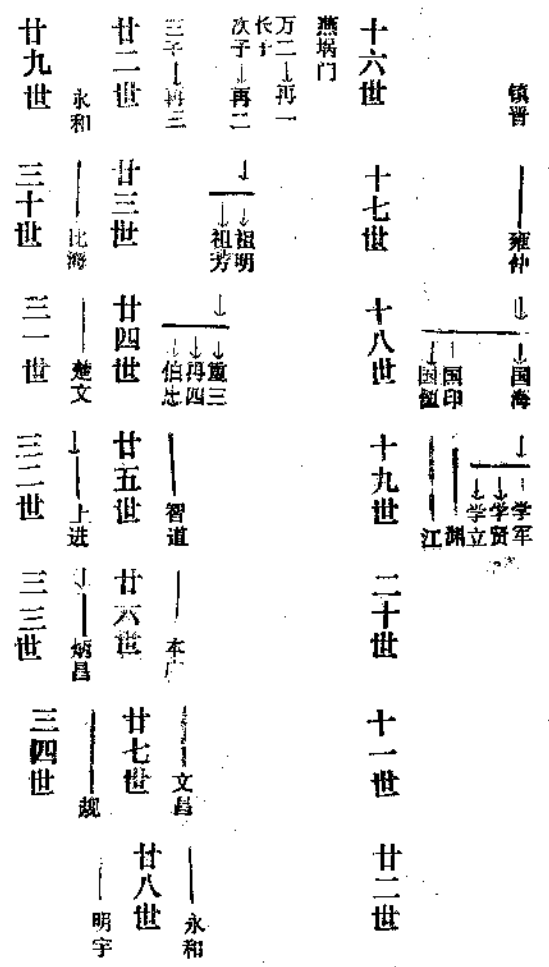 镇晋
雍仲
国海
国印
学军
学贤
学立
渊
江
十六世
十七世
十八世
十九世
二十世
十一世
廿二世
燕埚门
万二 再一
长子
次子 再二
三子 再三
祖明
祖芳
再四
智道
文昌
永和
廿二世
廿三世
廿四世
廿五世
廿六世
廿七世
廿八世
永和
比海
楚文
上进
炳昌
明宇
廿九世
三十世
三一世
三二世
三三世
三四世